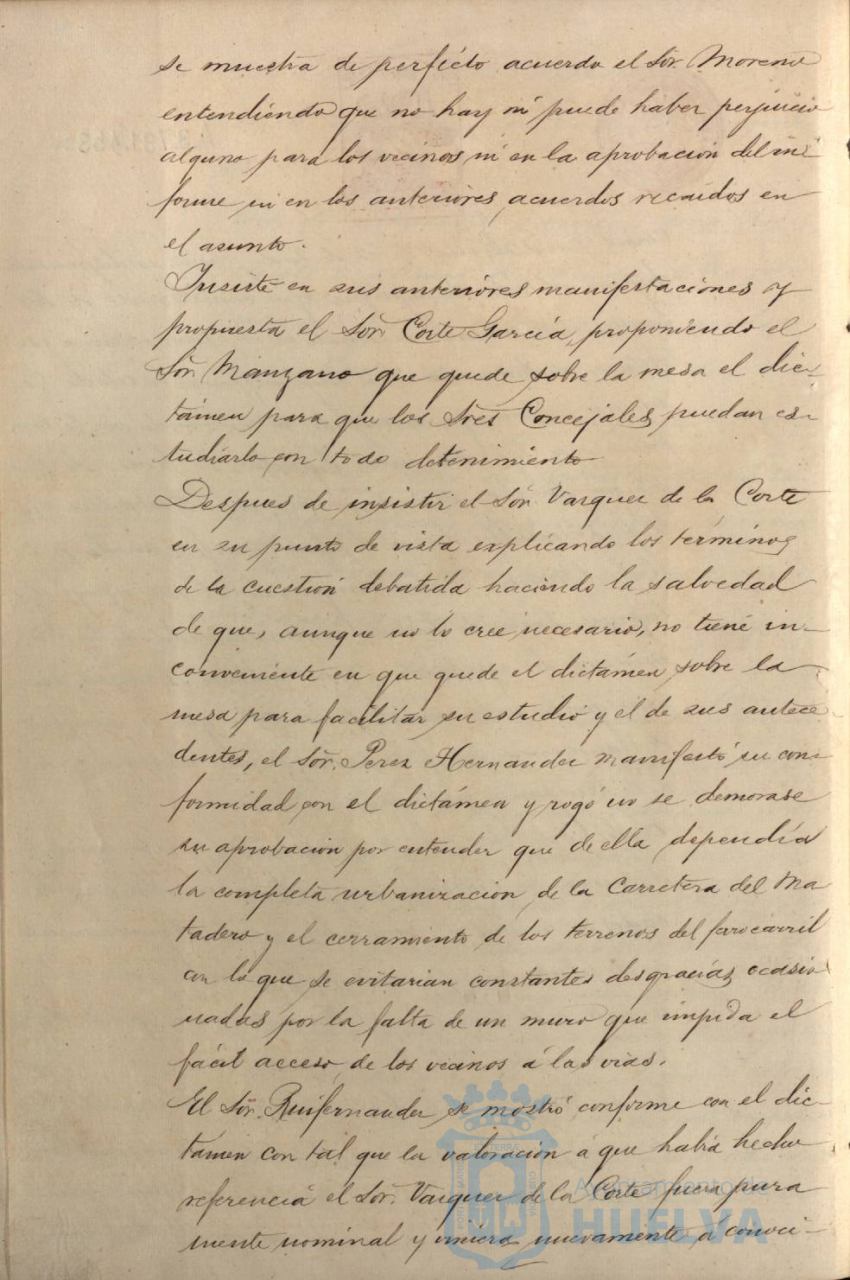 se muestra de perfécto acuerdo el Sor. Moreno
entendiendo que no hay ni puede haber perjuicio
alguno para los vecinos ni en la aprobación del in-
forme ni en los anteriores acuerdos recaidos en
el asunto.
Insiste en sus anteriores manifestaciones y
propuesta el Sor. Corte García, proponiendo el
Sor. Manzano que quede sobre la mesa el dic-
támen para que los Sres Concejales puedan es-
tudiarlo con todo detenimiento
Despues de insistir el Sor. Vazquez de la Corte
en su punto de vista explicando los términos
de la cuestión debatida haciendo la salvedad
de que, aunque no lo cree necesario, no tiene in-
conveniente en que quede el dictámen sobre la
mesa para facilitar su estudio y el de sus antece-
dentes, el Sor. Perez Hernandez manifestó su con-
formidad con el dictámen y rogó no se demorase
su aprobación por entender que de ella dependía
la completa urbanización de la Carretera del Ma
tadero y el cerramiento de los terrenos del ferrocarril
con lo que se evitarian constantes desgracias ocasio
nadas por la falta de un muro que impida el
fácil acceso de los vecinos á las vias.
El Sor. Ruifernandez se mostró conforme con el dic-
tamen con tal que la valoración a que había hecho
referencia el Sor. Vazquez de la Corte fuera pura
mente nominal y viniera nuevamente á conoci-
Ayuntamiento de
HUELVA